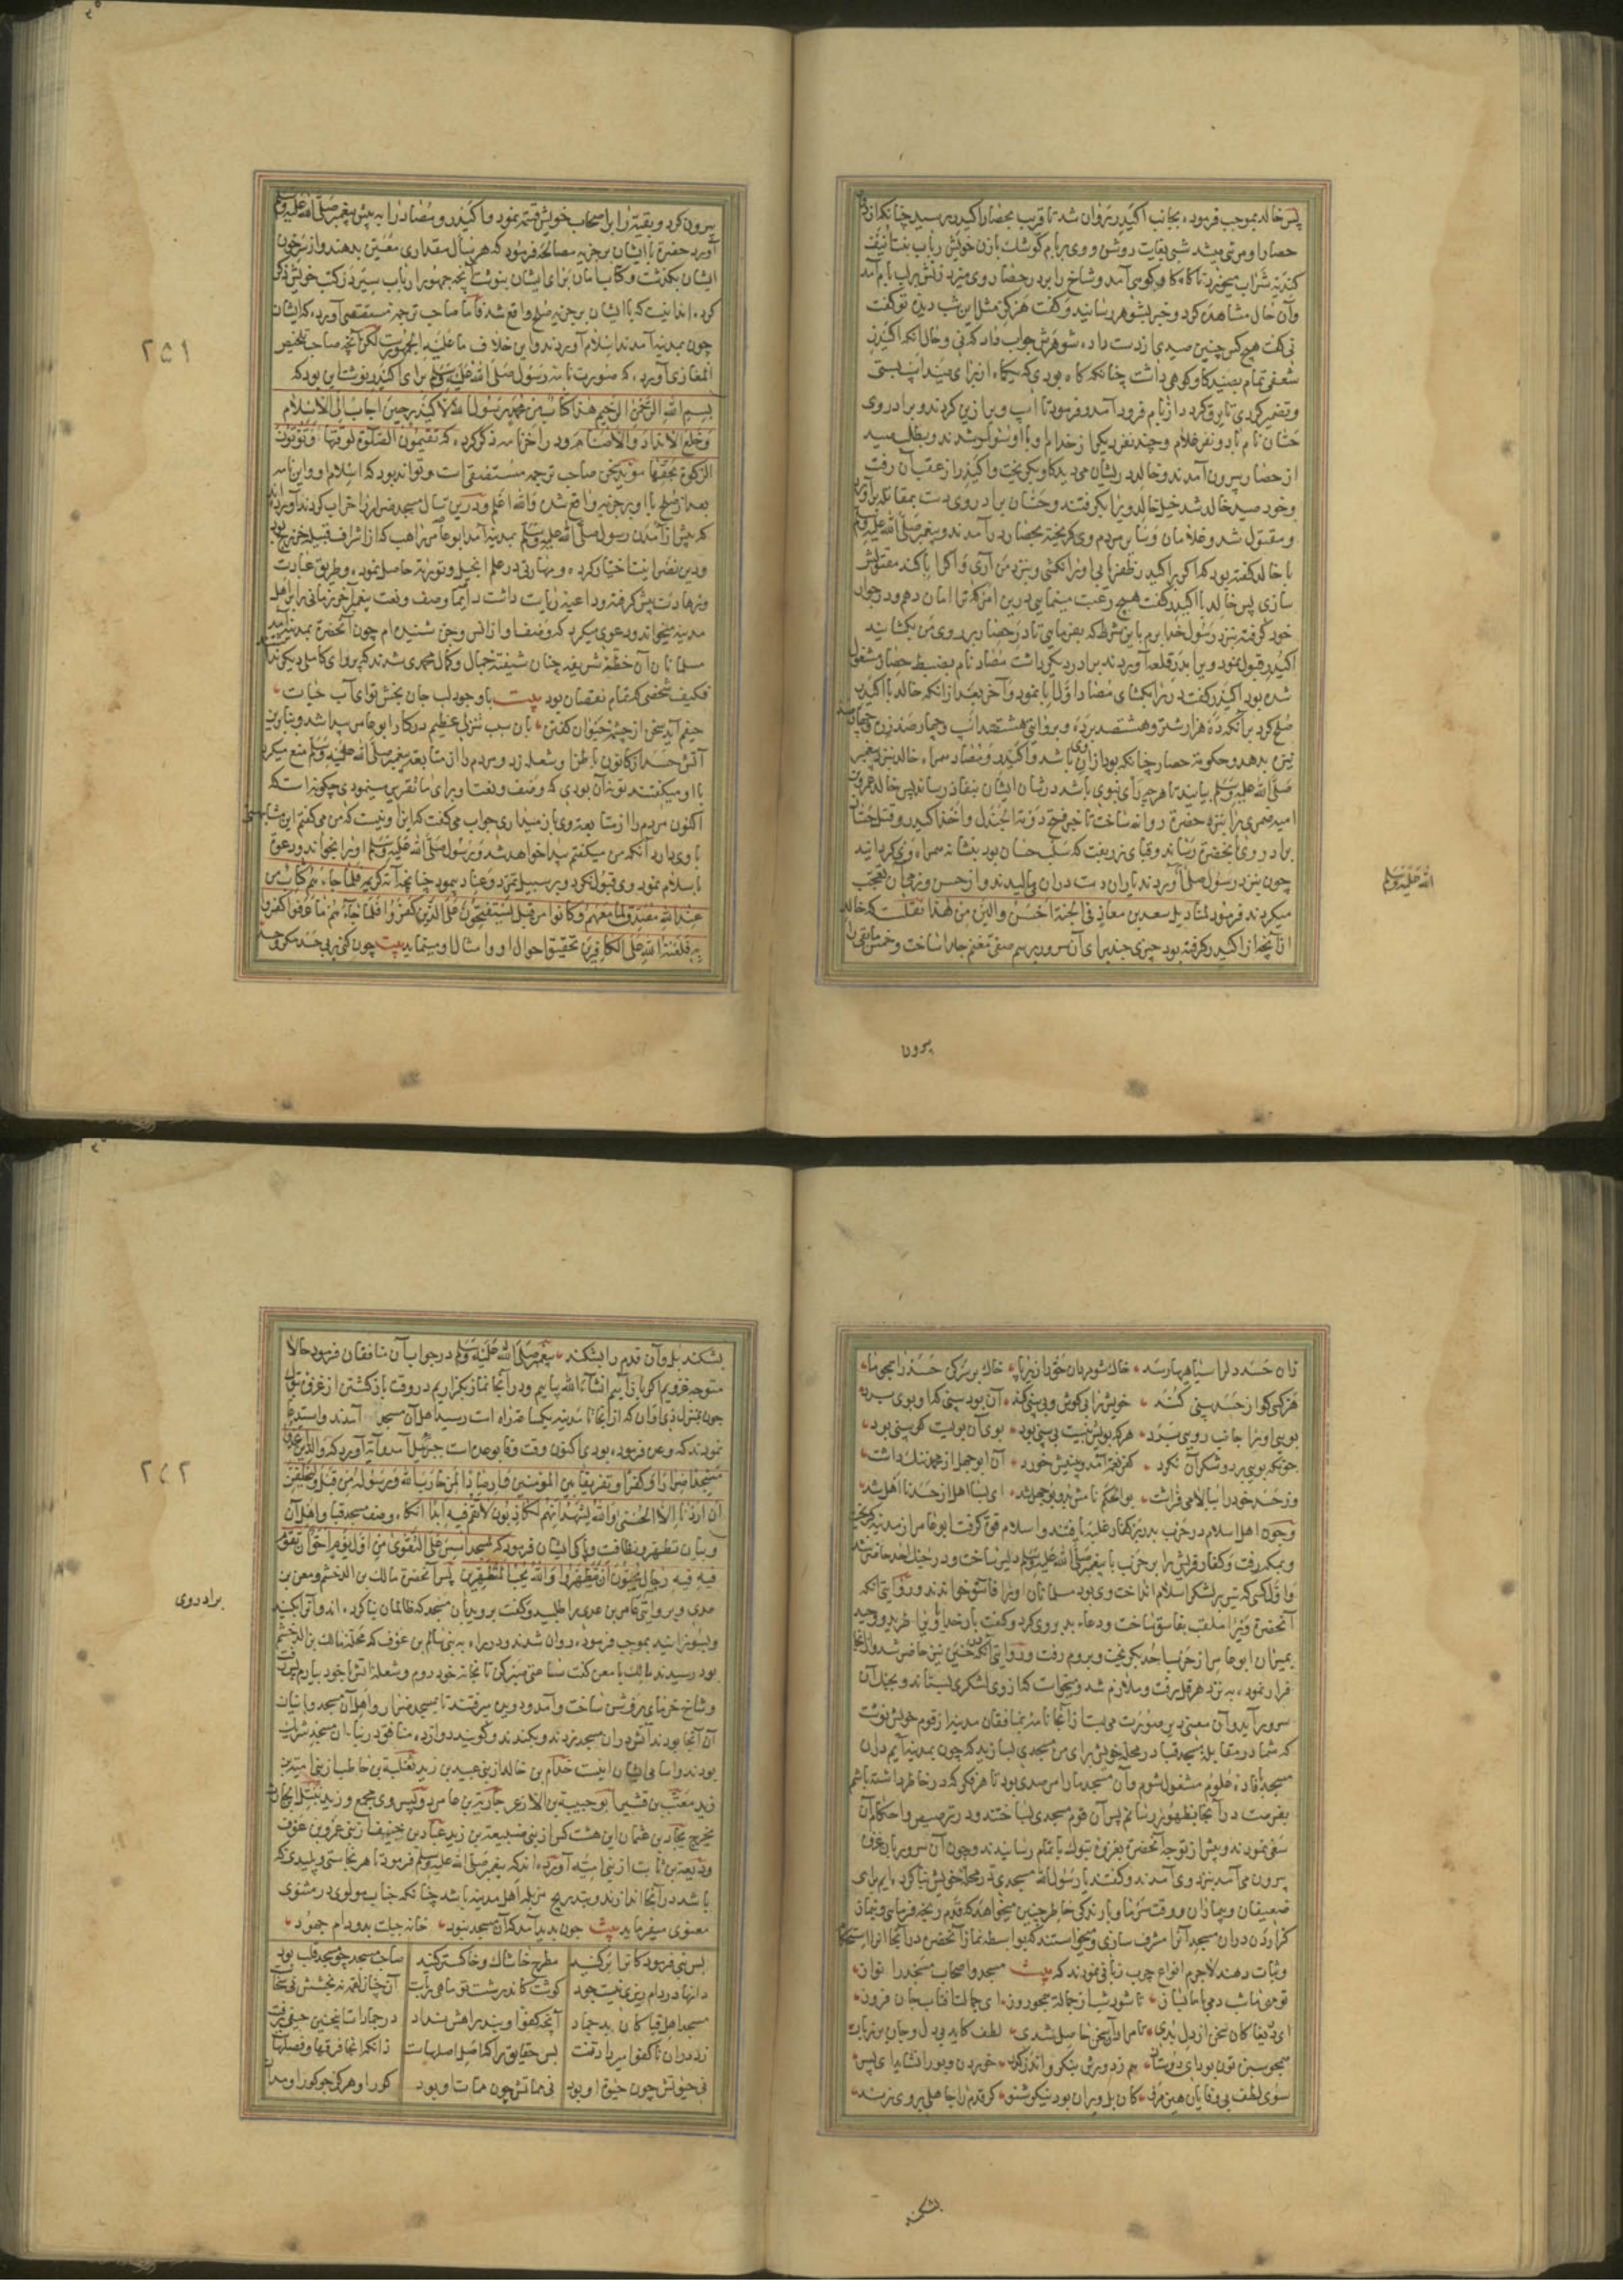 پس خالد بموجب فرموده بجانب اکیدر روان شد تا قریب بحصار اکیدر رسید چنانکه از دور
حصار او مرئی میشد شبی بغایت روشن و وی بر بام کوشک با زن خویش رباب بنت انیف
کندیه شراب میخورد ناگاه گاو کوهی آمد و شاخ را بر در حصار وی میزد زنش بر لب بام آمد
و آن حال مشاهده کرد و خبر بشوهر رسانید و گفت هرگز مثل این شب دیده تو گفت
نی گفت هیچ کس چنین صیدی از دست داده شوهرش جواب داد که نی و حال آنکه اکیدر
شعفی تمام بصید گاو کوهی داشت چنانکه گاه بودی که یکماه از برای صید اسپ بستی
و تضمیر کردی تا بدود از بام فرود آمد و فرمود تا اسپ ویرا زین کردند و برادر وی
حسّان نام با دو نفر غلام و چند نفر دیگر از خدام او با او سوار شدند و بطلب صید
از حصار بیرون آمدند و خالد در ایشان می دید گاو بگریخت و اکیدر از عقب آن رفت
و خود صید خالد شد خیل خالد ویرا بگرفتند و حسّان برادر وی دست بمقاتله برآورد
و مقتول شد و غلامان و سایر مردم وی گریخته بحصار در آمدند و پیغمبر صلی الله علیه وسلم
با خالد گفته بود که اگر بر اکیدر ظفر یابی او را نکشی و بنزد من آری و اگر ابا کند مقتولش
سازی پس خالد با اکیدر گفت هیچ رغبت مینمایی درین امر که ترا امان دهم و در جوار
خود گرفته بنزد رسول خدا برم باین شرط که بفرمایی تا در حصار بر روی من بگشایند
اکیدر قبول نمود ویرا بدر قلعه آوردند برادر دیگر داشت مضاد نام بضبط حصار مشغول
شده بود اکیدر گفت در را بگشای مضاد اوّل ابا نمود و آخر بعد از آنکه خالد با اکیدر
صلح کرد بر آنکه دو هزار شتر و هشتصد برده و بروایتی هشتصد اسپ و چهارصد زره و چهارصد
نیزه بدهد و حکومة حصار چنانکه بود از آن وی باشد و اکیدر و مضاد همراه خالد بنزد پیغمبر
صلی الله علیه وسلم بیایند تا هر چه رأی نبوی باشد در شان ایشان بنفاذ رساند پس خالد عمرو بن
امیه ضمری را بنزد حضرة روانه ساخت تا خبر فتح دومة الجندل و اخذ اکیدر و قتل حسّان
برادر وی بآنحضرة رساند و قبای زربفت که سلب حسان بود بنشانه همراه وی گردانید
چون بنزد رسول صلی آوردند یاران دست در آن می مالیدند و از حسن و نرمی آن تعجب
میکردند فرمود لمنادیل سعد بن معاذ فی الجنة احسن والین من هذا نقلست که خالد
از آنچه از اکیدر گرفته بود چیزی چند برای آن سرور برسم صفی مغنم جدا ساخت و خمس مابقی را
الله علیه وسلم
بیرون
بیرون کرد و بقیة را بر اصحاب خویش قسمة نمود و اکیدر و مضاد را به پیش پیغمبر صلی الله علیه وسلم
آورد حضرة با ایشان بر جزیه مصالحه فرمود که هر سال مقداری معیّن بدهند و از سر خون
ایشان بگذشت و کتاب امان برای ایشان بنوشت آنچه جمهور ارباب سیر در کتب خویش ذکر
کرده اند اینست که با ایشان بر جزیه صلح واقع شد فاما صاحب ترجمة مستقصی آورده که ایشان
چون بمدینه آمدند اسلام آوردند و این خلاف ما علیه الجمهورست لکن آنچه صاحب تلخیص
المغازی آورده که صورت نامه رسول صلی الله علیه وسلم برای اکیدر نوشت این بود که
بسم الله الرحمن الرحیم هذا کتاب من محمد رسول الله لاکیدر حین اجاب الی الاسلام
وخلع الانداد والاصنام و در آخر نامه ذکر کرده که تقیمون الصلوة لوقتها وتؤتون
الزکوة بحقها مؤید سخن صاحب ترجمه مستقصی است و تواند بود که اسلام او و این نامه
بعد از صلح با او بر جزیه واقع شده والله اعلم و درین سال مسجد ضرار را خراب کردند آورده اند
که پیش از آمدن رسول صلی الله علیه وسلم بمدینه آمد ابو عامر راهب که از اشراف قبیله خزرج بود
و دین نصرانیت اختیار کرده و مهارتی در علم انجیل و توریة حاصل نموده و طریق عبادت
و زهادت پیش گرفته و داعیه ریاست داشت دایما وصف و نعت پیغمبر آخر زمانی بر اهل
مدینه میخواند و دعوی میکرد که وصف او از انس و جن شنیده ام چون آنحضرة بمدینه آمد
مسلمانان آن خطّه شریفه چنان شیفته جمال و کمال محمدی شدند که پروای کامل دیگر نداشتند
فکیف شخصی که تمام نقصان بود بیت با وجود لب جان بخش تو ای آب حیات
حیفم آید سخن از چشمه حیوان گفتن بآن سبب تنزلی عظیم در کار ابو عامر پیدا شد و بنا برین
آتش حسد از کانون باطن او شعله زد و مردم را از متابعة پیغمبر صلی الله علیه وسلم منع میکرد
با او میگفتند تو نه آن بودی که وصف و نعت او برای ما تقریر مینمودی چگونه است که
اکنون مردم را از متابعة وی باز میداری جواب می گفت که این او نیست که من می گفتم این مشابهتی
با وی دارد آنکه من میگفتم پیدا خواهد شد و رسول صلی الله علیه وسلم او را بخواند و دعوت
باسلام نمود وی قبول نکرد و بر سبیل تمرّد و عناد پیمود چنانچه آیه کریمه فلما جاءهم کتاب من
عند الله مصدق لما معهم وکانوا من قبل یستفتحون علی الذین کفروا فلما جاءهم ما عرفوا کفروا
به فلعنة الله علی الکافرین تحقیق احوال او و امثال او مینماید بیت چون کنی بر بی حسد مکر و حسد
٢٤١
زان حسد دلرا سیاهیها رسد خاک شو مردان حق را زیر پا خاک بر سر کن حسد را همچو ما
هر کسی کو از حسد بینی کند خویش را بی گوش و بی بینی کند آن بود بینی که او بویی برد
بوی او را جانب رویی برد هر که بویش نیست بی بینی بود بوی آن بویست کو بینی بود
چونکه بویی برد و شکر آن نکرد کفر نعمة آمد و بینیش خورد آن ابو جهل از محمد ننگ داشت
وز حسد خود را ببالا می فراشت بو الحکم نامش بد و بوجهل شد ای بسا اهل از حسد نا اهل شد
و چون اهل اسلام در حرب بدر بر کفار غلبه یافتند و اسلام قوة گرفت ابو عامر از مدینه بگریخت
و بمکه رفت و کفار قریش را بر حرب با پیغمبر صلی الله علیه وسلم دلیر ساخت و در جنگ احد حاضر شد
و اول کسی که تیر بر لشکر اسلام انداخت وی بود مسلمانان او را فاسق خواندند و روایتی آنکه
آنحضرة ویرا ملقب بفاسق ساخت و دعاء بد بروی کرد و گفت بار خدایا ویرا طرید و وحید
بمیران ابو عامر از حرب احد بگریخت و بروم رفت و روایتی آنکه در حنین نیز حاضر شد و از آنجا
فرار نموده به نزد هرقل رفت و ملازم شد و میخواست که از وی لشکری بستاند و بجنگ آن
سرور آید و آن معنی بدین صورت می بست از آنجا نامه بمنافقان مدینه از قوم خویش نوشت
که شما در مقابله مسجد قبا در محله خویش برای من مسجدی بسازید که چون بمدینه آیم در آن
مسجد بافاده علوم مشغول شوم و آن مسجد ما را مرصدی بود تا هر فکر که در خاطر داشته باشم
بفرصت در آنجا بظهور رسانم پس آن قوم مسجدی بساختند و در ترصیص و احکام آن
سعی نمودند و پیش از توجه آنحضرة بغزوه تبوک باتمام رسانیدند و چون آن سرور بآن غزو
بیرون می آمد بنزد وی آمدند و گفتند یا رسول الله مسجدی در محله خویش بنا کرده ایم برای
ضعیفان و بیماران و وقت سرما و بارندگی خاطر چنین میخواهد که قدم رنجه فرمایی و نماز
گزاردن در آن مسجد آنرا مشرف سازی و میخواستند که بواسطه نماز آنحضرة در آنجا آنرا استحکام
و ثبات دهند لاجرم انواع چرب زبانی نمودند که بیت مسجد و اصحاب مسجد را نواز
تو مهی ما شب دمی با ما بساز تا شود شب از جمالت همچو روز ای جمالت آفتاب جان فروز
ای دریغا کان سخن از دل بدی تا مراد آن سخن حاصل شدی لطف کاید بی دل و جان بر زبان
همچو سبزه تون بود ای دوستان هم ز دورش بنگر و اندر گذر خوردن و بو را نشاید ای پسر
سوی لطف بی وفایان هین مرو کان پل ویران بود نیکو شنو گر قدم را جاهلی بر وی زند
بشکند
بشکند پل و آن قدم را بشکند پیغمبر صلی الله علیه وسلم در جواب آن منافقان فرمود حالا
متوجه غزویم اگر باز آییم انشاء الله بیاییم و در آنجا نماز بگزاریم در وقت بازگشتن از غزوه تبوک
چون بمنزل ذی اوان که از آنجا تا مدینه یکساعته راه است رسید اهل آن مسجد آمدند و استدعا
نمودند که وعده فرموده بودی اکنون وقت وفا بوعده است جبرئیل آمد و آیة آورد که والذین اتخذوا
مسجدا ضرارا وکفرا وتفریقا بین المؤمنین وارصادا لمن حارب الله ورسوله من قبل ولیحلفن
ان اردنا الا الحسنی والله یشهد انهم لکاذبون لا تقم فیه ابدا آنگاه وصف مسجد قبا و اهل آن
و بیان تطهر و نظافت و پاکی ایشان فرمود که لمسجد اسس علی التقوی من اول یوم احق ان تقوم
فیه فیه رجال یحبون ان یتطهروا والله یحب المطهرین پس آنحضرة مالک بن الدخشم و معن بن
عدی و بروایتی عامر بن عدی را طلبید و گفت بروید بآن مسجد که ظالمان بنا کرده اند و آنرا بکنید
و بسوزانید بموجب فرموده روان شدند و در راه به بنی سالم بن عوف که محله مالک بن الدخشم
بود رسیدند مالک با معن گفت ساعتی صبر کن تا بخانه خود روم و شعله آتش با خود بیارم پس برفت
و شاخ خرمای بر فروش ساخت و آمد و دویدن گرفتند تا بمسجد ضرار و اهل آن مسجد و بانیان
آن آنجا بودند آتش در آن مسجد زدند و بکندند و گویند دوازده منافق در بناء آن مسجد شریک
بودند و اسامی ایشان اینست خذام بن خالد از بنی عبید بن زید ثعلبة بن حاطب از بنی امیه بن
زید معتّب بن قشیر ابو حبیبة بن الازعر جاریة بن عامر و دو پسر وی مجمع و زید نبتل بن الحارث
بحزج بجاد بن عثمان این هشت کس از بنی ضبیعة بن زید عبّاد بن حنیف از بنی عمرو بن عوف
ودیعة بن ثابت از بنی امیّه آورده اند که پیغمبر صلی الله علیه وسلم فرمود تا هر نجاستی و پلیدی که
باشد در آنجا اندازند و بتدریج مزبله اهل مدینه باشد چنانکه جناب مولوی در مثنوی
معنوی میفرماید بیت چون پدید آمد که آن مسجد نبود خانه حیلت بد و دام جهود
پس نبی فرمود کانرا بر کنید مطرح خاشاک و خاکستر کنید صاحب مسجد چو مسجد قلب بود
دانها در دام ریزی نیست جود گوشت کاندر شست تو ماهی رباست آن چنان لقمه نه بخشش نی سخاست
مسجد اهل قبا کان بد جماد آنچه کفو او نبد راهش نداد در جمادات اینچنین حیفی نرفت
زد در آن ناکفو امیر داد نفت پس حقایق را که اصل اصلهاست زانکه آنجا فرقها و فصلهاست
نی حیوتش چون حیوة او بود نی مماتش چون ممات او بود گور او هرگز چو گور او مدان
٢٤٢
برادر وی